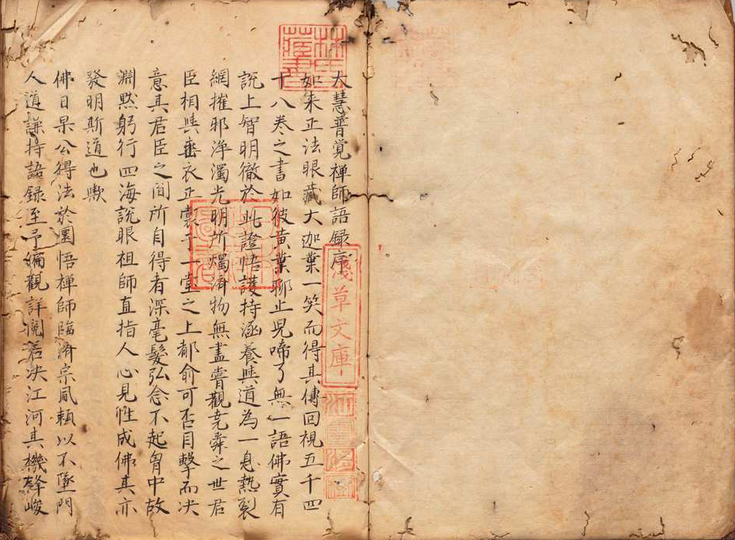 大慧普覚禅師語録序
如来正法眼藏大迦葉一笑而得其傳回視五千四
十八卷之書如彼黄葉聊止児啼了無一語佛實有
説上智明徹於此證悟護持涵養與道為一息熱裂
網摧邪浄濁光明所燭濟物無盡嘗觀堯舜之世君
臣相與垂衣正裳于一堂之上都俞可否目擊而决
意其君臣之間所自得者深毫髪弘念不起胷中故
淵黙躬行四海説眼祖師直指人心見性成佛其亦
發明斯道也歟
佛日杲公得法於圜悟禅師臨濟宗風頼以不墜門
人道謙持語録至予編觀詳閲若决江河其機鋒峻
淺草文庫